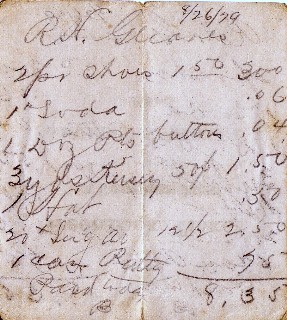 /26/29
R.N. Gleaves
2 pr Shoes 1 50 3 00
1 " Soda .06
1 Doz buttons .04
3 yds 50¢ 1.50
1 Hat .50
20 # Sugar 12 1/2 2.50
1 can
Paid 8.35